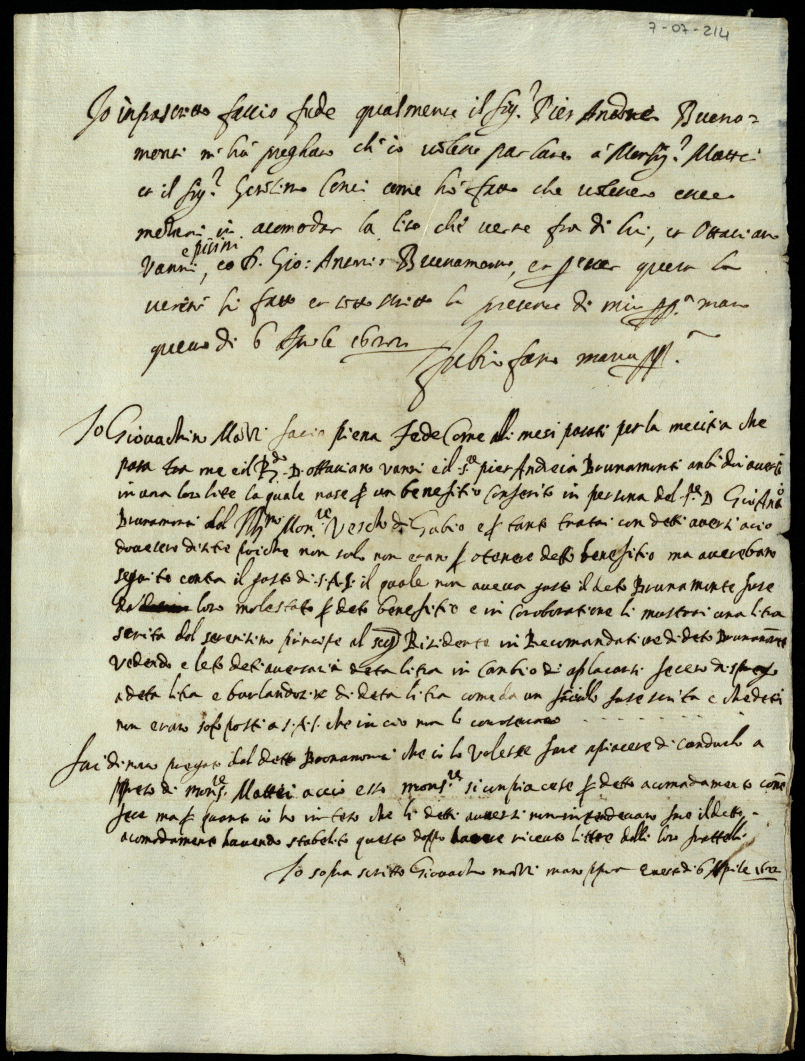 7-07-214
Io infrascritto faccio fede qualmente il Sig.r Pier Andrea Buena=
menti m'hà preghato ch'io volesse parlare à Monsig.r Mattei
et il Sig.r Gerolimo Cenci come hò fatto che volessero essere
in acomodar la lite che verte fra di lui, et Ottaviano
e p̃rini
Vanni, co D. Gio: Antonio Buenamente, et p esser questa la
verità hò fatto et sotto scritto la presente di mia pp.a mano
questo di 6 Aprile 1622
Fabio mano pp.a
Io Giovachino facio piena fede Come alli mesi pasati per la che
pasa tra me e il R.do D. Ottaviano vanni e il s.re pier Andreia Brunamenti anbi dui aversi
in una loro lite la quale nase p un benefitio Conferito in persina del s.re D Gio: Anto
Brunamonti dal Ill.mo Mon.re Vescho di Gubio e p tanto tratai con detti aversi acio
dovesero poiche non solo non eran p otenere detto benefitio ma averebano
seguito contra il gusto di s.A.s. il quale non aveva gusto il deto Brunamente fuse
loro molestato p deto benefitio e in Coroboratione li mostrai una litra
scrita dal serenisimo principe al sig. Risidente in Recomandatione di deto Brunamente
vedendo e leto deti aversari deta litra in Cambio di aplacarsi fecero
a deta litra e burlandosi di deta litra come da un fuse scrita e che deti
non erano soto posti a s.A.s. che in cio non lo conoscevano
Fui di novo pregato dal detto Bounamonti che io lo volesse fare apiacere di condurlo a
di mons.re Mattei accio esso mons.re si conpiacese p detto acomodamento come
fece ma p quanto io ho inteso che li detti aversi non intendevano fare il detto
acomodamento havendo stabelito questo doppo havere riceuto littre dalli loro fratelli
Io sopra scritto Giovachino mano ppria questo di 6 Aprile 1622